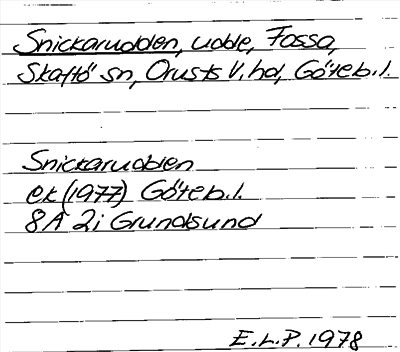 Snickarudden, udde, Fossa,
Skaftö sn, Orusts V. hd, Göteb.l.
Snickarudden
ek (1977) Göteb.l.
8A 2i Grundsund
E.L.P. 1978